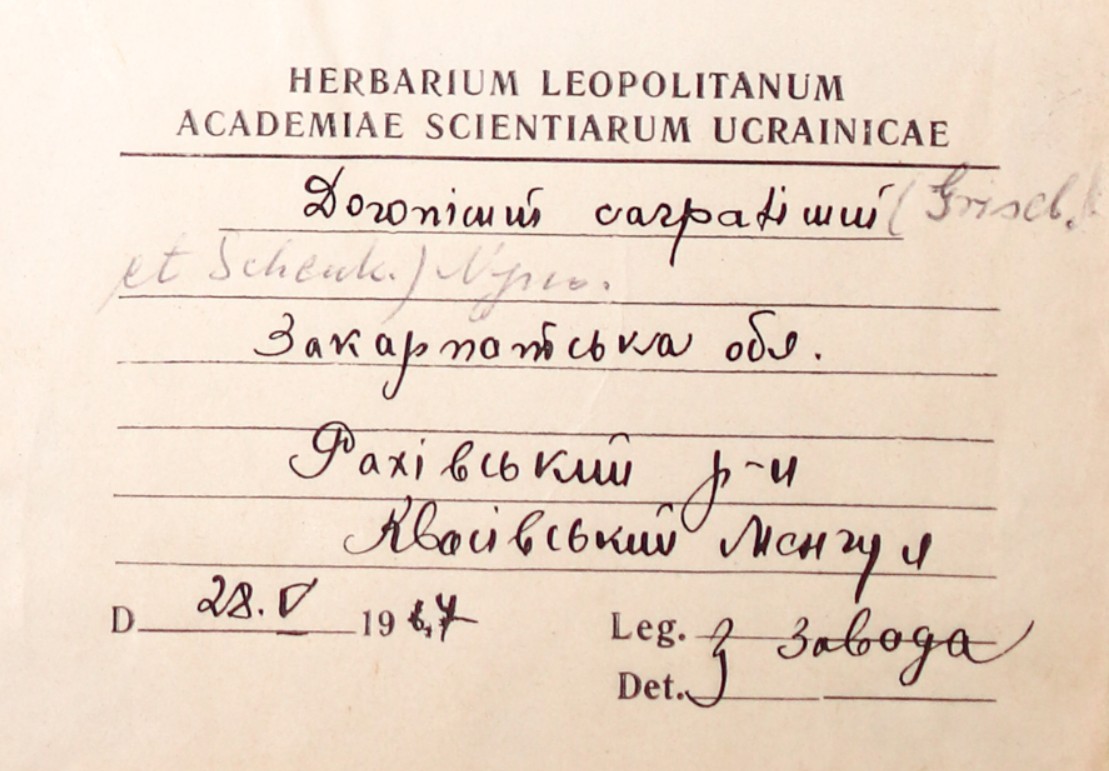 HERBARIUM LEOPOLITANUM
ACADEMIAE SCIENTIARUM UCRAINICAE
Doronicum carpaticum (Griseb.
et Schenk.) Nym.
Закарпатська обл.
Рахівський р-н
Квасівський Менчул
D 28.V 1967 Leg. З Завода
Det.